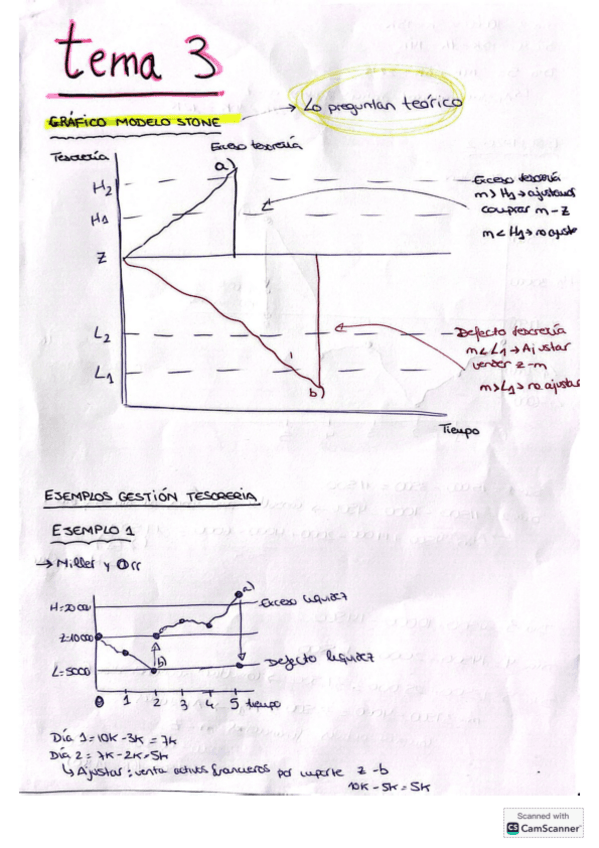 tema 3
GRÁFICO MODELO STONE
→ Lo preguntan teórico
Tesorería
Exceso tesorería
a)
H2
H1
Z
L2
L1
b)
Tiempo
Exceso tesorería
m > H1 → ajustamos
comprar m - Z
m < H1 → no ajuste
Defecto tesorería
m < L1 → Ajustar
vender z - m
m > L1 → no ajustar
EJEMPLOS GESTIÓN TESORERIA
EJEMPLO 1
→ Miller y Orr
a)
H=20000
Exceso liquidez
Z=10000
b)
L=5000
Defecto liquidez
0 1 2 3 4 5 tiempo
Día 1 = 10K - 3K = 7K
Día 2 = 7K - 2K = 5K
↳ Ajustar: venta activos financieros por importe z - b
10K - 5K = 5K
Scanned with
CS CamScanner